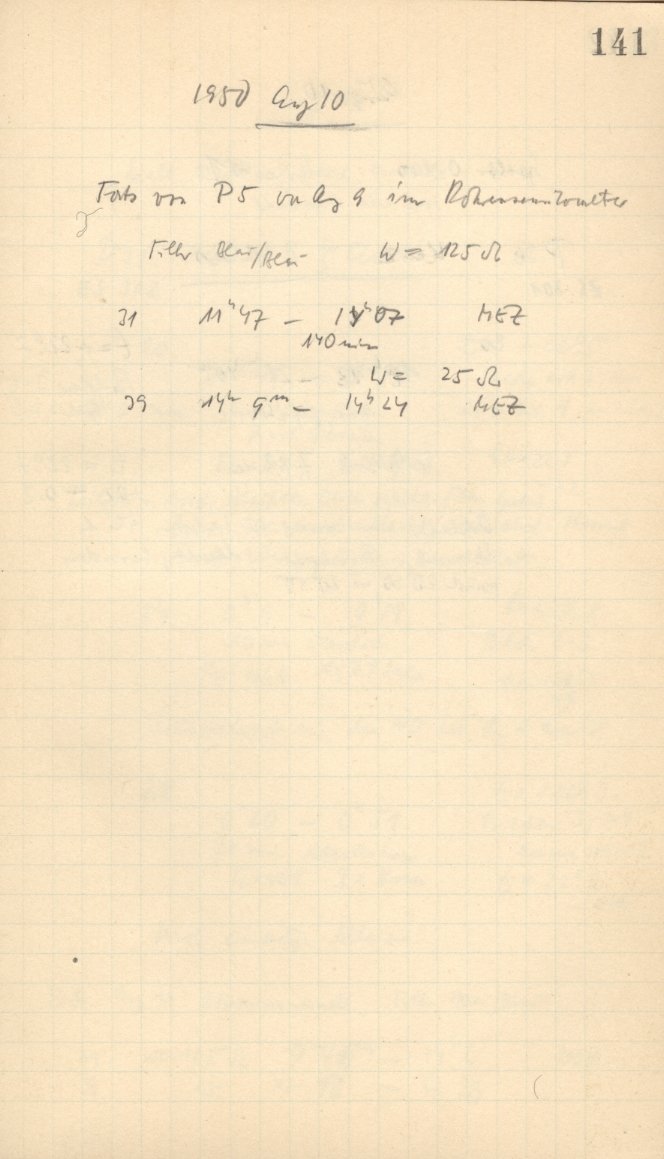 141
1950 Aug 10
Forts von P5 von Aug 9 im Röhrensensitometer
Filter Blau/Blau W = 125 Ω
31 11h47 – 14h07 MEZ
140 min
W = 25 Ω
39 14h 9m – 14h24 MEZ